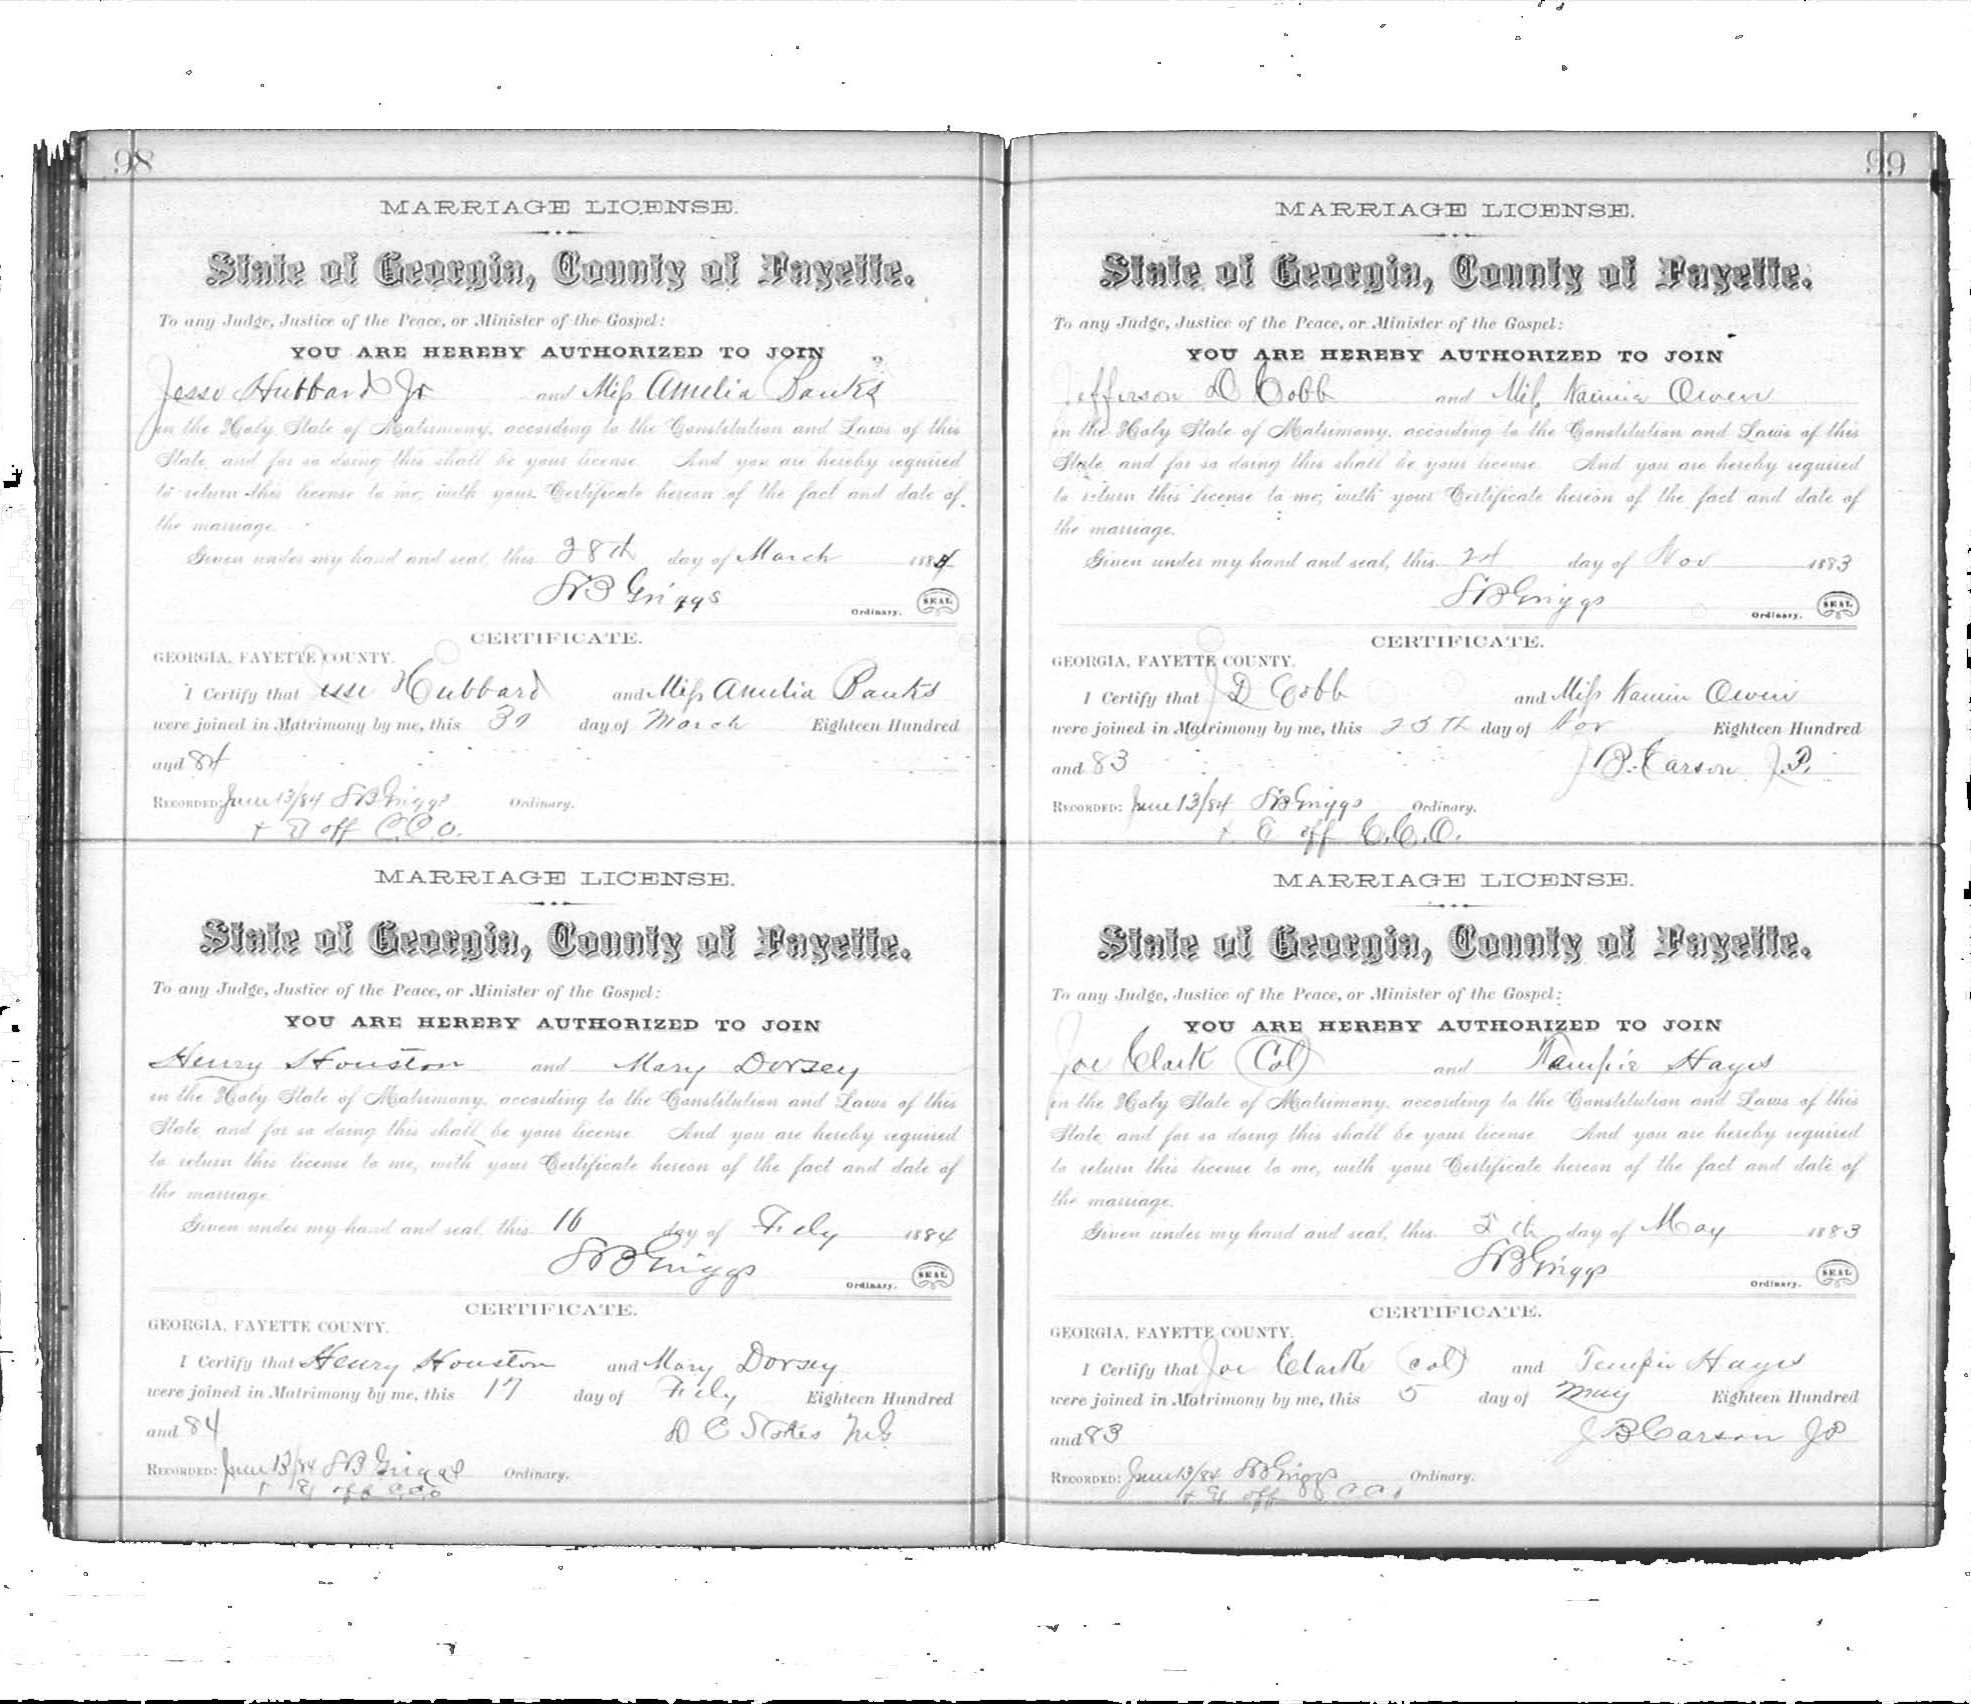 98
MARRIAGE LICENSE.
State of Georgia, County of Fayette.
To any Judge, Justice of the Peace, or Minister of the Gospel:
YOU ARE HEREBY AUTHORIZED TO JOIN
Jesse Hubbard Jr and Miss Amelia Banks
in the Holy State of Matrimony, according to the Constitution and Laws of this
State, and for so doing this shall be your license. And you are hereby required
to return this license to me, with your Certificate hereon of the fact and date of
the marriage.
Given under my hand and seal, this 28th day of March 1884
S B Griggs
Ordinary. SEAL
CERTIFICATE.
GEORGIA, FAYETTE COUNTY.
I Certify that Jesse Hubbard and Miss Amelia Banks
were joined in Matrimony by me, this 30 day of March Eighteen Hundred
and 84
RECORDED: June 13/84 S B Griggs Ordinary.
+ E off C.C.O.
MARRIAGE LICENSE.
State of Georgia, County of Fayette.
To any Judge, Justice of the Peace, or Minister of the Gospel:
YOU ARE HEREBY AUTHORIZED TO JOIN
Henry Houston and Mary Dorsey
in the Holy State of Matrimony, according to the Constitution and Laws of this
State, and for so doing this shall be your license. And you are hereby required
to return this license to me, with your Certificate hereon of the fact and date of
the marriage.
Given under my hand and seal, this 16 day of 1884
S B Griggs
Ordinary. SEAL
CERTIFICATE.
GEORGIA, FAYETTE COUNTY.
I Certify that Henry Houston and Mary Dorsey
were joined in Matrimony by me, this 17 day of Eighteen Hundred
and 84
D C Stokes M G
RECORDED: June 13/84 S B Griggs Ordinary.
+ E off C.C.O
99
MARRIAGE LICENSE.
State of Georgia, County of Fayette.
To any Judge, Justice of the Peace, or Minister of the Gospel:
YOU ARE HEREBY AUTHORIZED TO JOIN
Jefferson D Cobb and Miss Nannie Owen
in the Holy State of Matrimony, according to the Constitution and Laws of this
State, and for so doing this shall be your license. And you are hereby required
to return this license to me, with your Certificate hereon of the fact and date of
the marriage.
Given under my hand and seal, this 24 day of Nov 1883
S B Griggs
Ordinary. SEAL
CERTIFICATE.
GEORGIA, FAYETTE COUNTY.
I Certify that J D Cobb and Miss Nannie Owen
were joined in Matrimony by me, this 25th day of Nov Eighteen Hundred
and 83 J B. Carson J.P.
RECORDED: June 13/84 S B Griggs Ordinary.
+ E off C.C.O.
MARRIAGE LICENSE.
State of Georgia, County of Fayette.
To any Judge, Justice of the Peace, or Minister of the Gospel:
YOU ARE HEREBY AUTHORIZED TO JOIN
Joe Clark (Col) and Tempie Hayes
in the Holy State of Matrimony, according to the Constitution and Laws of this
State, and for so doing this shall be your license. And you are hereby required
to return this license to me, with your Certificate hereon of the fact and date of
the marriage.
Given under my hand and seal, this day of May 1883
S B Griggs
Ordinary. SEAL
CERTIFICATE.
GEORGIA, FAYETTE COUNTY.
I Certify that Joe Clarke (col) and Tempie Hayes
were joined in Matrimony by me, this 5 day of May Eighteen Hundred
and 83 J B Carson JP
RECORDED: June 13/84 S B Griggs Ordinary.
+ E off